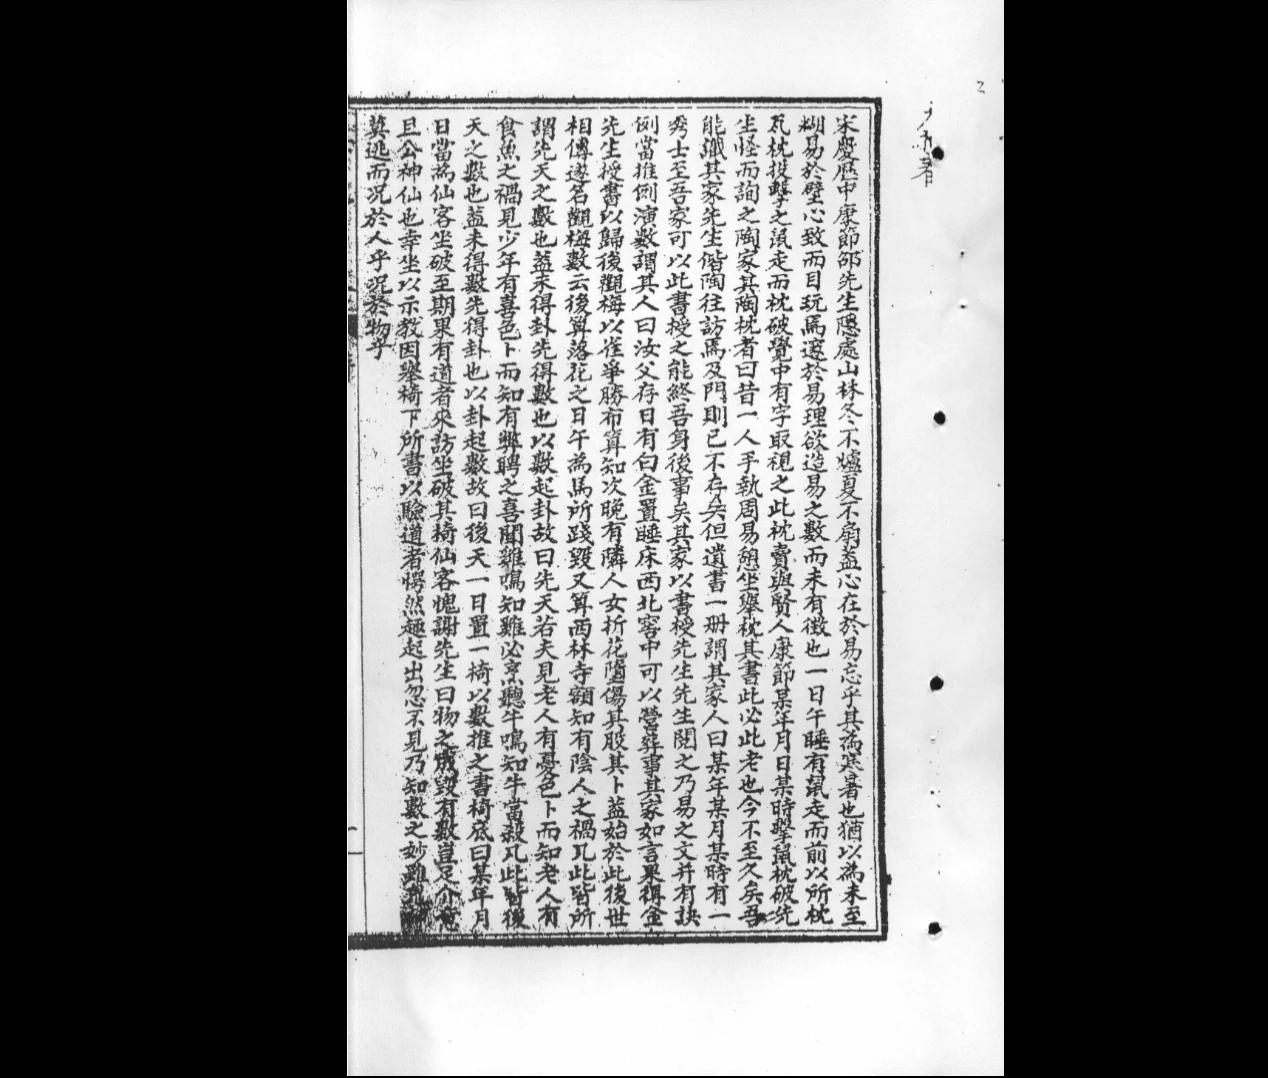 宋慶曆中康節邵先生隱處山林冬不爐夏不扇蓋心在於易忘乎其為寒暑也猶以為未至
糊易於壁心致而目玩焉邃於易理欲造易之數而未有徵也一日午睡有鼠走而前以所枕
瓦枕投擊之鼠走而枕破覺中有字取視之此枕賣與賢人康節某年月日某時擊鼠枕破先
生怪而詢之陶家其陶枕者曰昔一人手執周易憩坐舉枕其書此必此老也今不至久矣吾
能識其家先生偕陶往訪焉及門則已不存矣但遺書一冊謂其家人曰某年某月某時有一
秀士至吾家可以此書授之能終吾身後事矣其家以書授先生先生閱之乃易之文并有訣
例當推例演數謂其人曰汝父存日有白金置睡床西北窖中可以營葬事其家如言果得金
先生授書以歸後觀梅以雀爭勝布算知次晚有隣人女折花墮傷其股其卜蓋始於此後世
相傳遂名觀梅數云後算落花之日午為馬所踐毀又算西林寺額知有陰人之禍凡此皆所
謂先天之數也蓋未得卦先得數也以數起卦故曰先天若夫見老人有憂色卜而知老人有
食魚之禍見少年有喜色卜而知有弊聘之喜聞雞鳴知雞必烹聽牛鳴知牛當殺凡此皆後
天之數也蓋未得數先得卦也以卦起數故曰後天一日置一椅以數推之書椅底曰某年月
日當為仙客坐破至期果有道者來訪坐破其椅仙客愧謝先生曰物之成毀有數豈足介意
且公神仙也幸坐以示教因舉椅下所書以驗道者愕然趨起出忽不見乃知數之妙雖鬼神
莫逃而況於人乎況於物乎